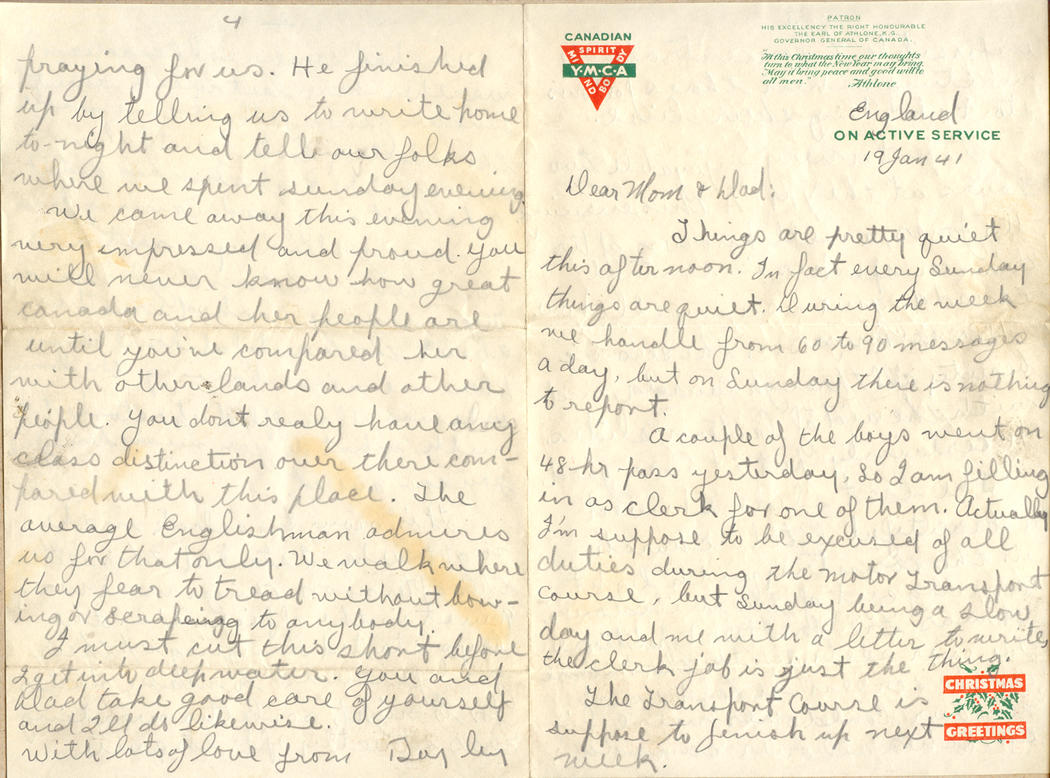 4
praying for us. He finished
up by telling us to write home
to-night and tell our folks
where we spent Sunday evening.
We came away this evening
very impressed and proud. You
will never know how great
Canada and her people are
until you've compared her
with other lands and other
people. You don't realy have any
class distinction over there com-
pared with this place. The
average Englishman admires
us for that only. We walk where
they fear to tread without bow-
ing or scrapeing to anybody.
I must cut this short before
I get into deep water. You and
Dad take good care of yourself
and I'll do likewise.
With lots of love from
CANADIAN
SPIRIT
MIND
BODY
Y·M·C·A
PATRON
HIS EXCELLENCY THE RIGHT HONOURABLE
THE EARL OF ATHLONE, K.G.
GOVERNOR GENERAL OF CANADA.
"At this Christmas time our thoughts
turn to what the New Year may bring.
"May it bring peace and good will to
all men."
Athlone
England
ON ACTIVE SERVICE
19 Jan 41
Dear Mom & Dad:
Things are pretty quiet
this afternoon. In fact every Sunday
things are quiet. During the week
we handle from 60 to 90 messages
a day, but on Sunday there is nothing
to report.
A couple of the boys went on
48 hr pass yesterday, so I am filling
in as clerk for one of them. Actually
I'm suppose to be excused of all
duties during the Motor Transport
Course, but Sunday being a slow
day and me with a letter to write,
the clerk job is just the thing.
The Transport Course is
suppose to finish up next
week.
CHRISTMAS
GREETINGS